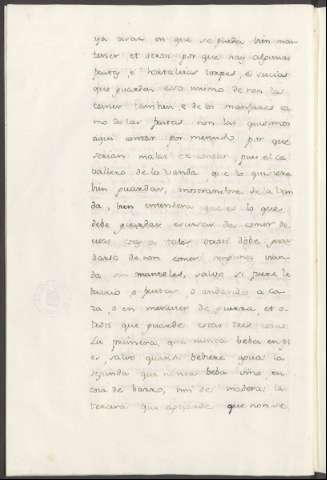 ya otras en que se pueda bien man
tener et otrosi por que hay algunas
frutas, e hortalizas torpes, e sucias
que guardan eso mismo de non las
comer tambien, e de los manjares co
mo de las frutas non las quisimos
aqui contar por menudo, por que
serian malas de contar, pues el ca
ballero de la Vanda que lo quisiere
bien guardar, mostrandose de la Van
da, bien entendera que es lo que
debe guardar escusar de comer de
vera cosas tales otrosi debe guar
darse de non comer ninguna vian
da sin manteles, salvo si fuere le
tuario o frutas, o andando a ca
za, o en menester de guerra, et o
trosi que guarde estas tres cosas
La primera, que nunca beba en pi
e, salvo quando bebiere agua la
segunda que nunca beba vino en
cosa de barro, nin de madera: la
tercera que aprende que non se